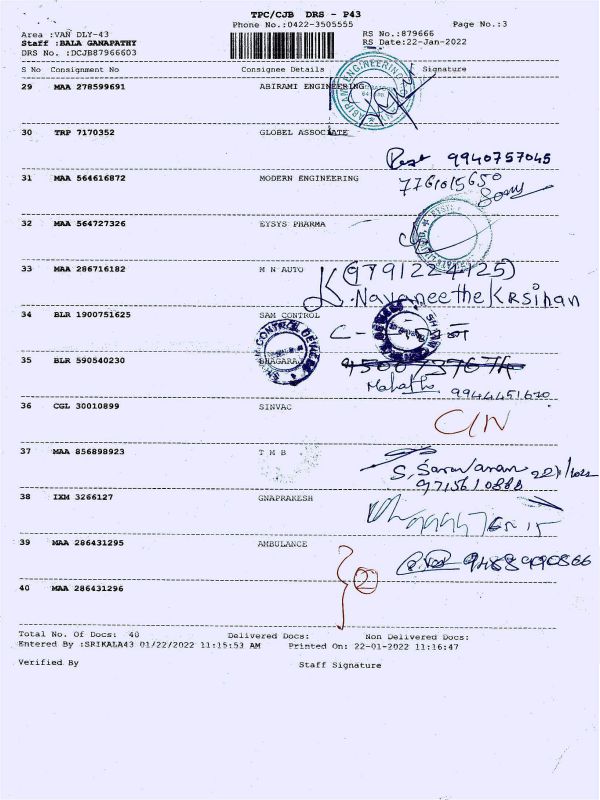 TPC/CJB DRS - P43
Phone No.:0422-3505555
Page No.:3
Area :VAN DLY-43
RS No.:879666
Staff :BALA GANAPATHY
RS Date:22-Jan-2022
DRS No. :DCJB87966603
S No Consignment No Consignee Details Signature
29 MAA 278599691 ABIRAMI ENGINEERING
30 TRP 7170352 GLOBEL ASSOCIATE
9940757045
31 MAA 564616872 MODERN ENGINEERING
7761015650
32 MAA 564727326 EYSYS PHARMA
33 MAA 286716182 M N AUTO
(9791224125)
K.Navaneethe Krsihan
34 BLR 1900751625 SAM CONTROL
35 BLR 590540230 BHAGARAJ
9944451670
36 CGL 30010899 SINVAC
C/N
37 MAA 856898923 T M B
S. Saravanan
9715610888
38 IXM 3266127 GNAPRAKESH
39 MAA 286431295 AMBULANCE
9488990866
2
40 MAA 286431296
Total No. Of Docs: 40 Delivered Docs: Non Delivered Docs:
Entered By :SRIKALA43 01/22/2022 11:15:53 AM Printed On: 22-01-2022 11:16:47
Verified By Staff Signature